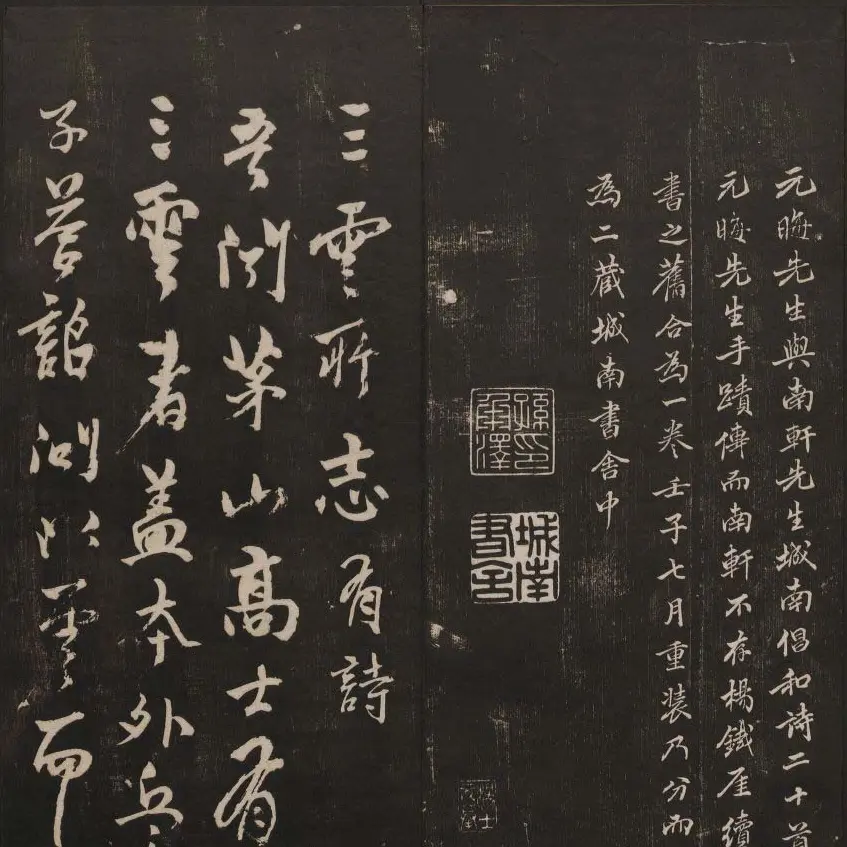 元晦先生與南軒先生城南倡和詩二十首
元晦先生手蹟傳而南軒不存楊鐵厓續
書之舊合為一卷壬子七月重裝乃分而
為二藏城南書舍中
城南書舍
三雲所志有詩
吾聞茅山高士有
三雲者盖本外
子答詔問以雲而